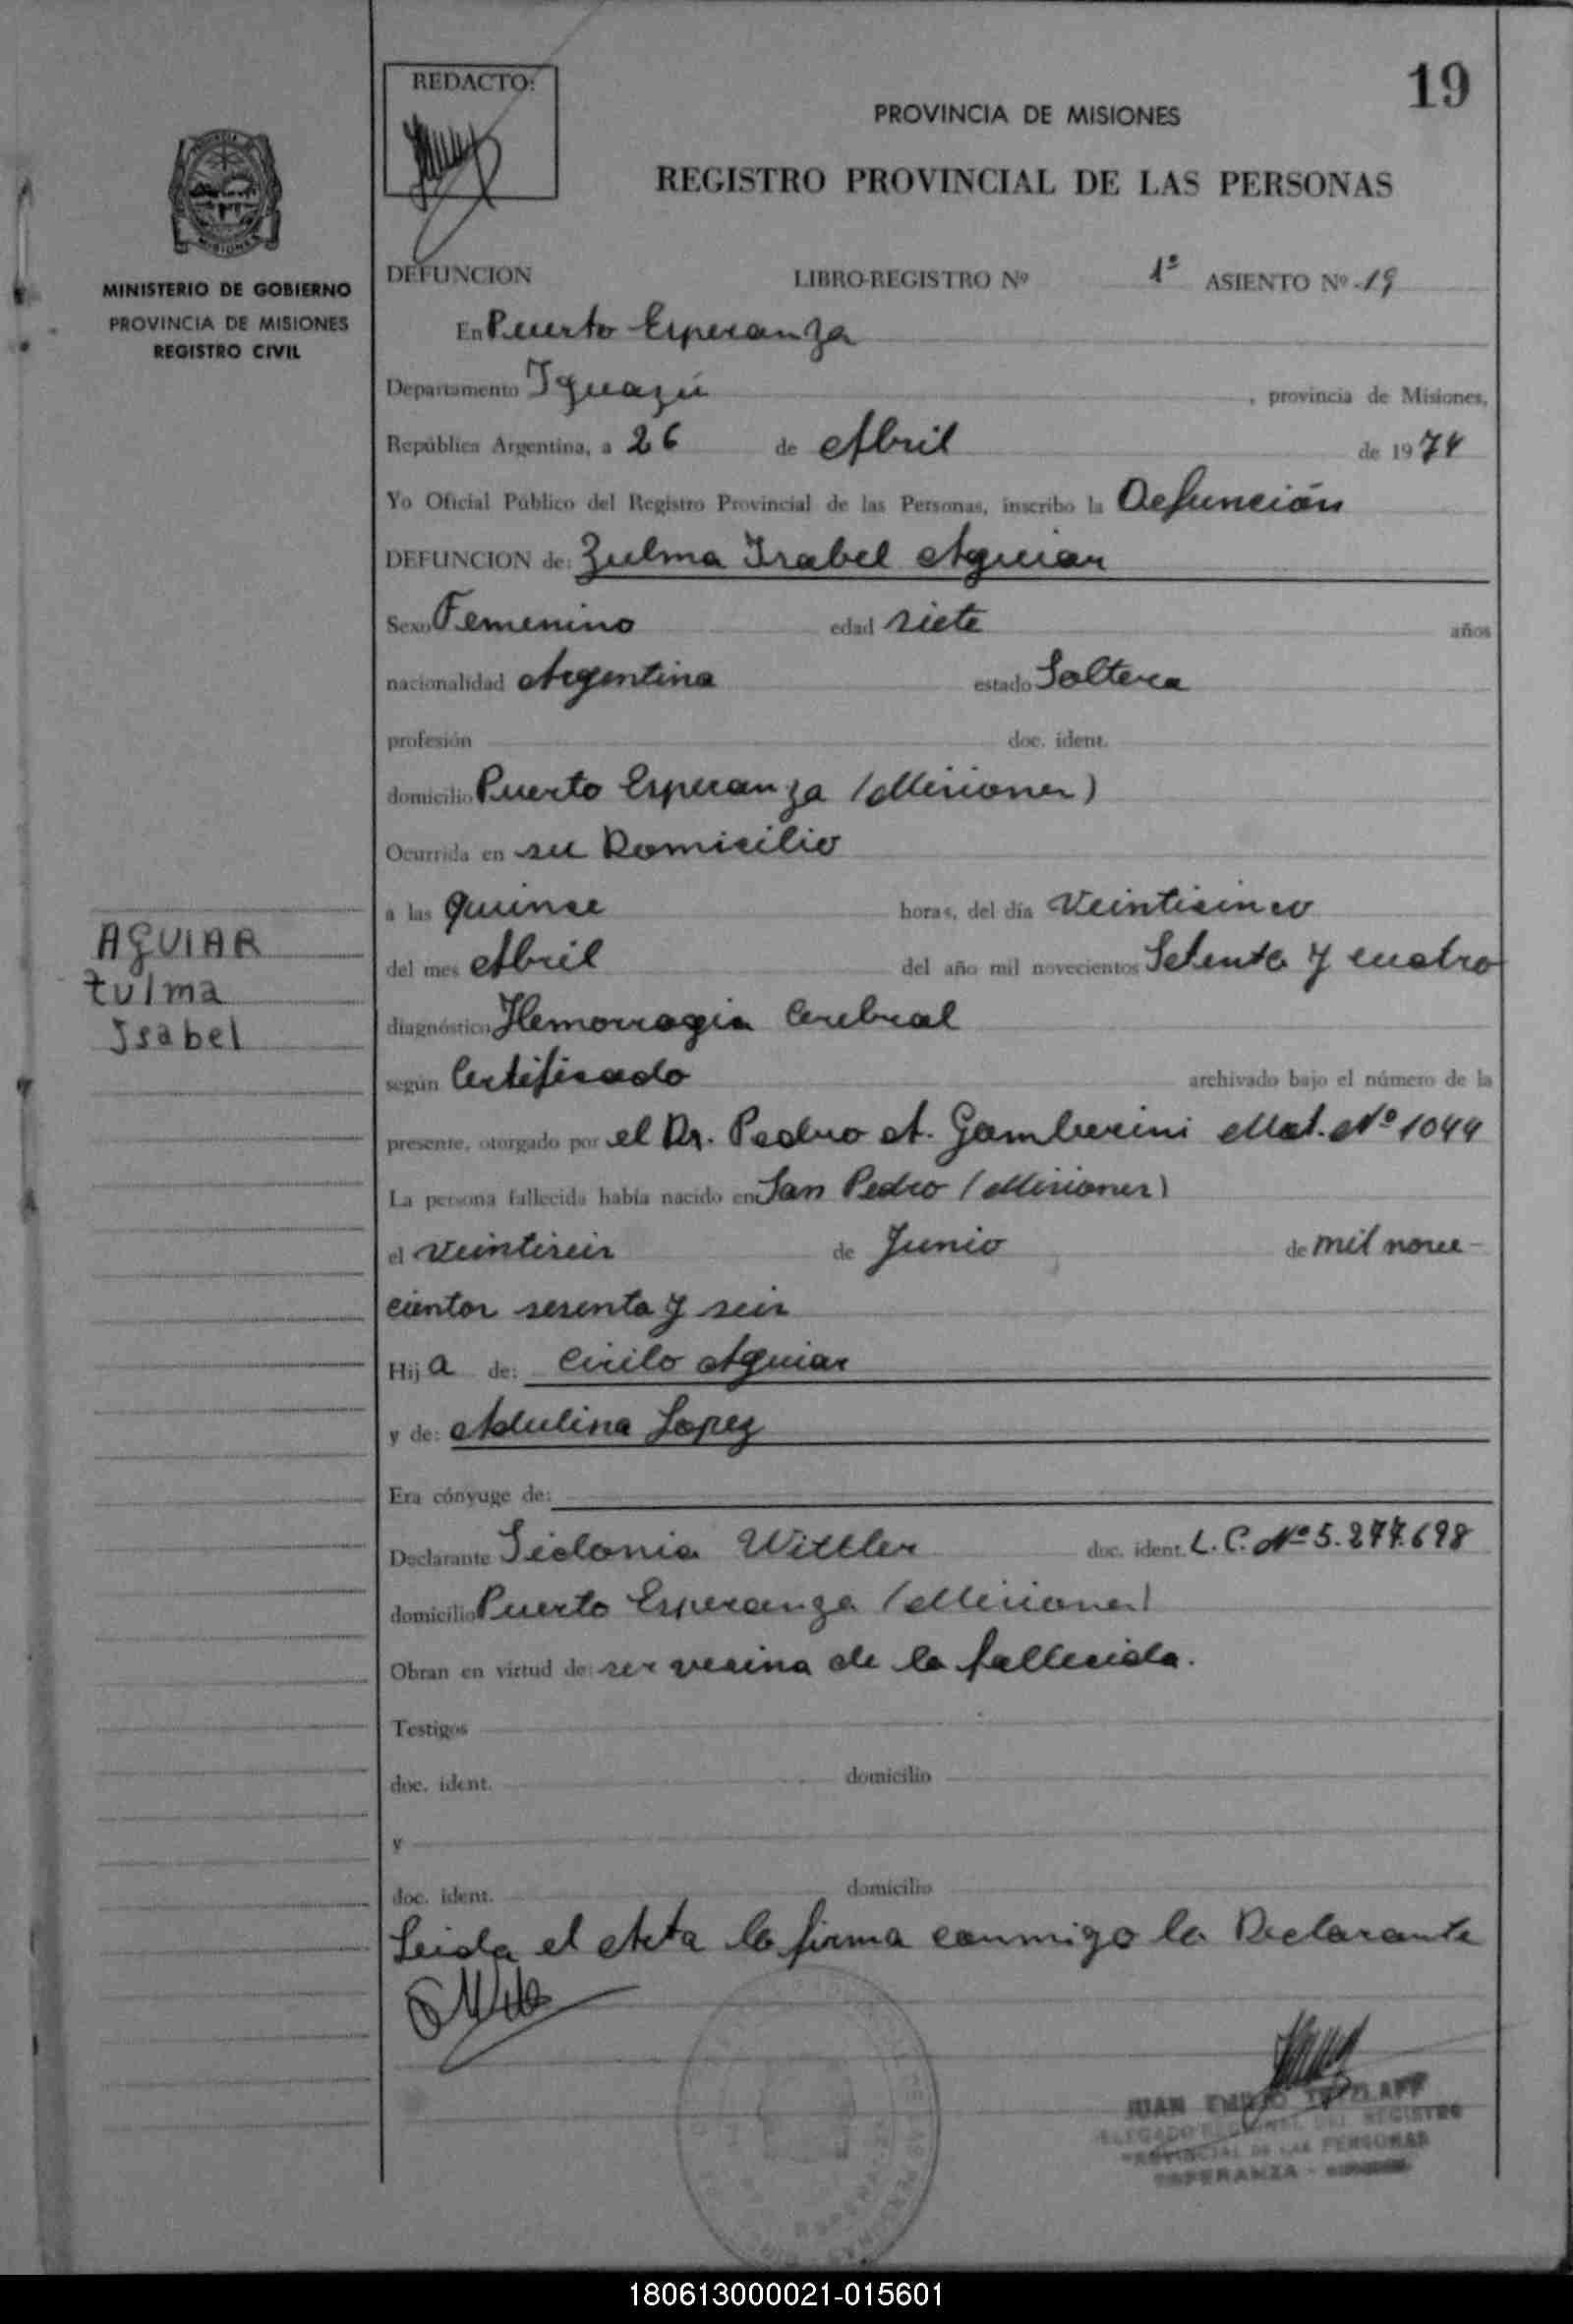 REDACTO:
19
PROVINCIA DE MISIONES
REGISTRO PROVINCIAL DE LAS PERSONAS
MINISTERIO DE GOBIERNO
PROVINCIA DE MISIONES
REGISTRO CIVIL
DEFUNCION LIBRO-REGISTRO Nº 1º ASIENTO Nº 19
En Puerto Esperanza
Departamento Iguazú, provincia de Misiones,
República Argentina, a 26 de Abril de 1974
Yo Oficial Público del Registro Provincial de las Personas, inscribo la Defunción
DEFUNCION de: Zulma Isabel Aguiar
Sexo Femenino edad siete años
nacionalidad Argentina estado Soltera
profesión doc. ident.
domicilio Puerto Esperanza (Misiones)
Ocurrida en su Domicilio
a las quinse horas, del día Veintisinco
del mes Abril del año mil novecientos Setenta y cuatro
AGUIAR
Zulma
Isabel
diagnóstico Hemorragia Cerebral
según Certificado archivado bajo el número de la
presente, otorgado por el Dr. Pedro A. Gamberini Mat. Nº 1044
La persona fallecida había nacido en San Pedro (Misiones)
el Veintiseis de Junio de mil nove-
cientos sesenta y seis
Hija de: Cirilo Aguiar
y de: Adulina Lopez
Era cónyuge de:
Declarante Sidonia Wittler doc. ident. L.C. Nº 5.277.698
domicilio Puerto Esperanza (Misiones)
Obran en virtud de: ser vesina de la fallecida.
Testigos
doc. ident. domicilio
y
doc. ident. domicilio
Leida el Acta la firma conmigo la Declarante
JUAN EMILIO
REGIONAL DEL REGISTRO
PROVINCIAL DE LAS PERSONAS
ESPERANZA -
180613000021-015601